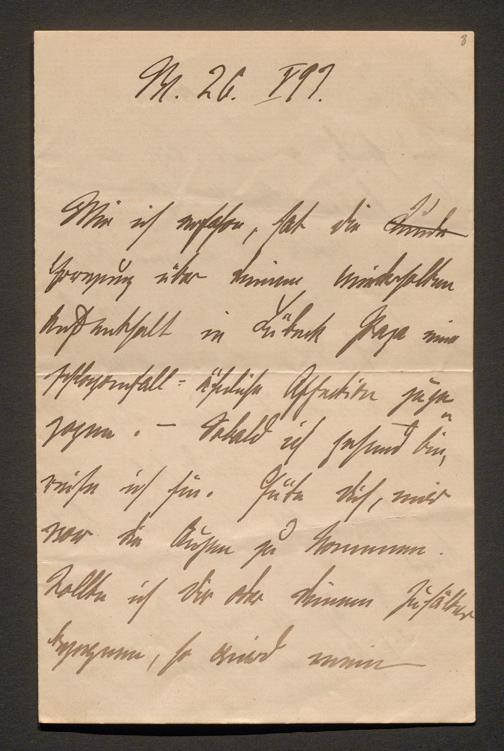 3
M. 26. V 97.
Wie ich erfahre, hat die K̶u̶n̶d̶e̶
Erregung über Deinen wiederholten
Aufenthalt in Lübeck Papa eine
schlaganfall-ähnliche Affection zuge
zogen. – Sobald ich gesund bin,
reise ich hin. Hüte Dich, mir
vor die Augen zu kommen.
Sollte ich Dir oder Deinem Zuhälter
begegnen, so wird mein